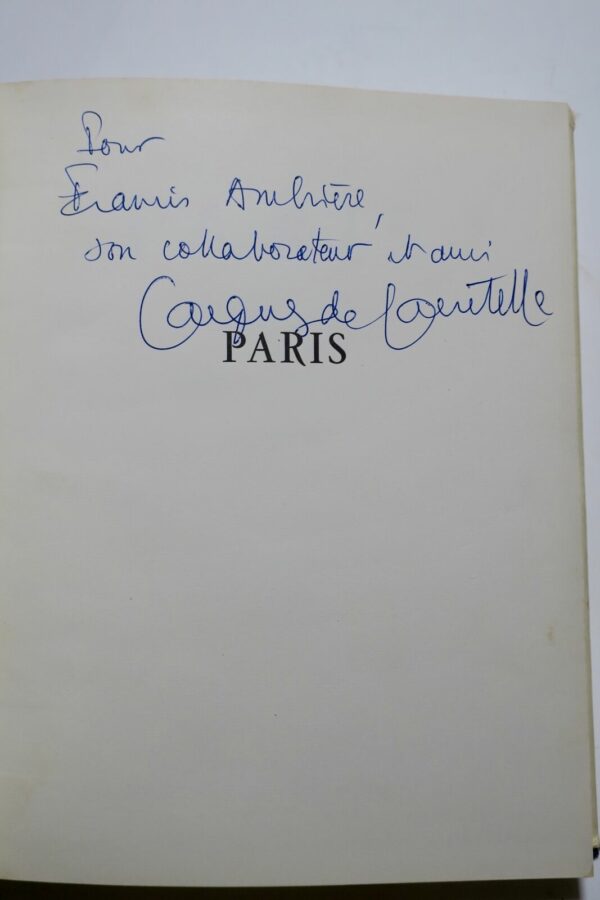 Pour
Francis Ambrière,
son collaborateur et ami
Jacques de Lacretelle
PARIS